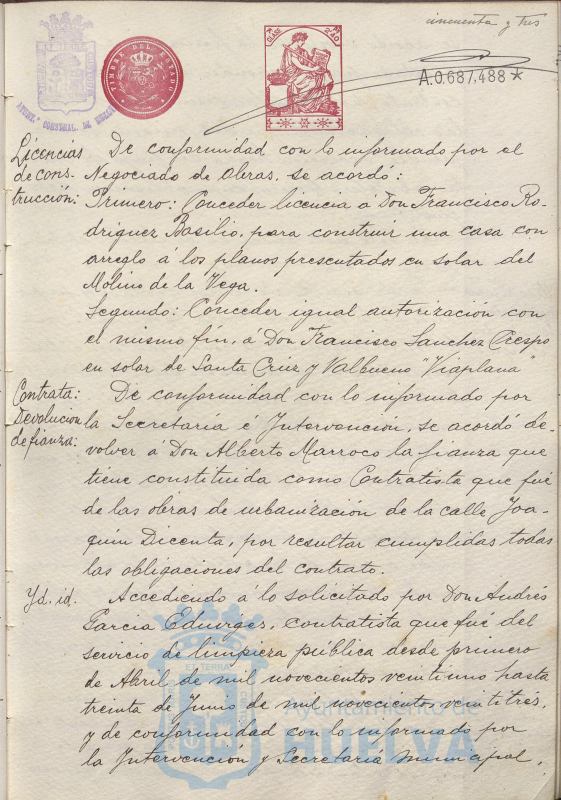 cincuenta y tres
TIMBRE DEL ESTADO
CLASE 8ª
A.0.687.488*
Licencias
de cons-
trucción:
De conformidad con lo informado por el
Negociado de Obras, se acordó:
Primero: Conceder licencia á Don Francisco Ro-
driguez Basilio, para construir una casa con
arreglo á los planos presentados en solar del
Molino de la Vega.
Segundo: Conceder igual autorización con
el mismo fin, á Don Francisco Sanchez Crespo
en solar de Santa Cruz y Valbueno "Viaplana"
Contrata:
Devolucion
de fianza:
De conformidad con lo informado por
la Secretaría é Intervención, se acordó de-
volver á Don Alberto Marroco la fianza que
tiene constituida como Contratista que fué
de las obras de urbanización de la calle Joa-
quin Dicenta, por resultar cumplidas todas
las obligaciones del contrato.
Yd. id.
Accediendo á lo solicitado por Don Andrés
Garcia Eduviges, contratista que fué del
servicio de limpieza pública desde primero
de Abril de mil novecientos veintiuno hasta
treinta de Junio de mil novecientos veintitrés,
y de conformidad con lo informado por
la Intervención y Secretaría municipal,
ET TERRA
Ayuntamiento de
HUELVA